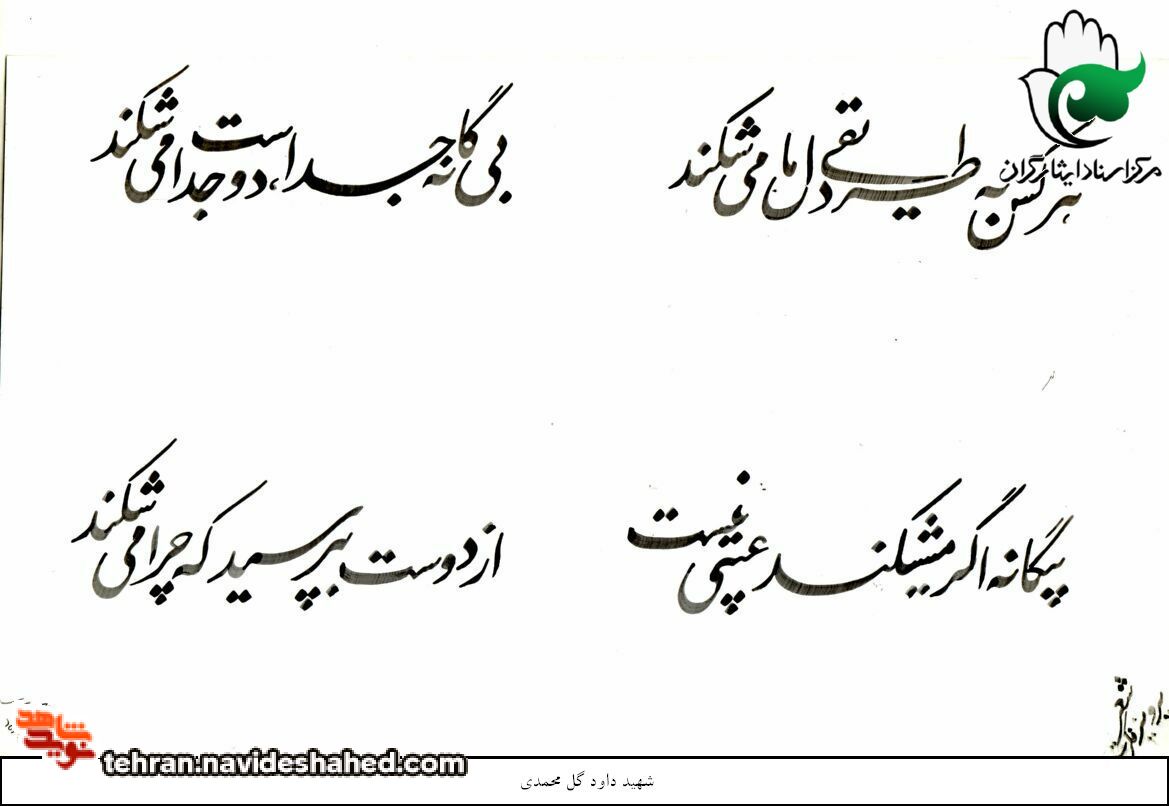 مرکز اسناد ایثارگران
هر کس به طریقی دل ما می شکند
بی گانه جدا است، دو جدا می شکند
بیگانه اگر میشکند عیبی نیست
از دوست بپرسید که چرا می شکند
شاهد
نوید
tehran.navideshahed.com
شهید داود گل محمدی